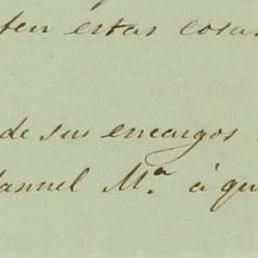 ten estas cosas
de sus encargos
Mannel Mª. á qu